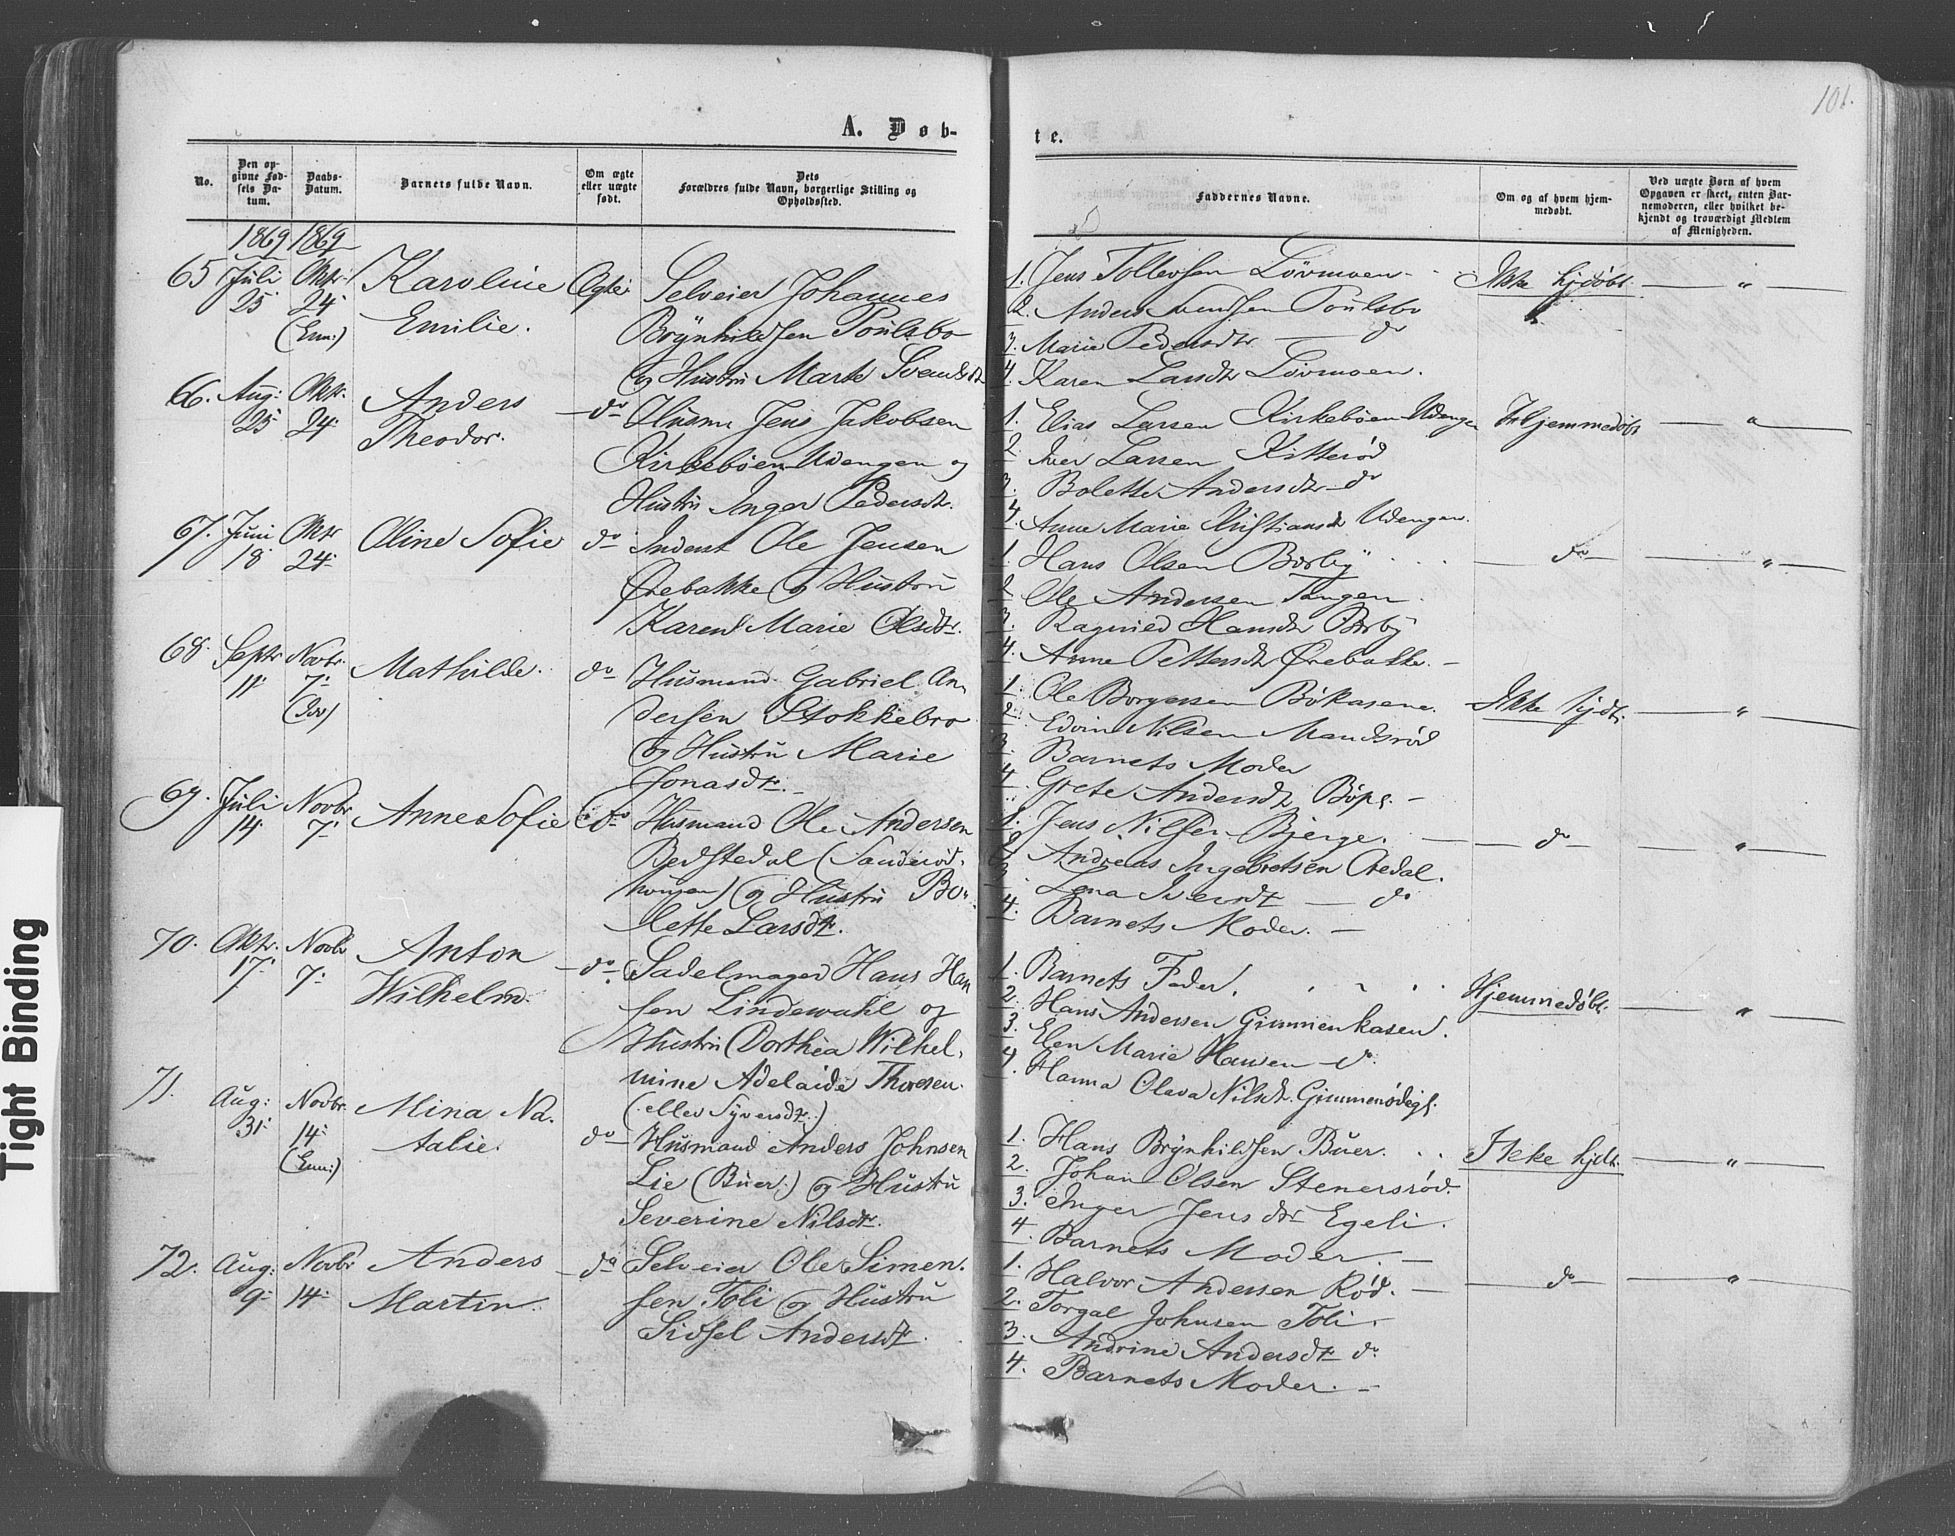 101.
A. Døb-
te.
No.
Den op-
givne Fød-
sels Da-
tum.
Daabs-
Datum.
Barnets fulde Navn.
Om ægte
eller uægte
født.
Dets
Forældres fulde Navn, borgerlige Stilling og
Opholdssted.
Faddernes Navne.
Om og af hvem hjem-
medøbt.
Ved uægte Børn af hvem
Opgaven er skeet, enten Bar-
nemoderen, eller hvilket be-
kjendt og troværdigt Medlem
af Menigheden.
1869 1869
65 Juli 25 Oktr. 24 (Enn:)
Karoline
Emilie.
Ægte
Selveier Johannes
Brynhildsen Poulsbo
og Hustru Marte Svendsdtr
1. Jens Tollevsen Lövmoen
2. Anders Svendsen Poulsbo
3. Marie Pedersdtr — do
4. Karen Larsdtr Lövmoen.
Ikke hjdøbt — " —
66. Aug: 25 Oktr. 24
Anders
Theodor.
do
Husm. Jens Jakobsen
Kirkebøen Udengen og
Hustru Inger Pedersdtr.
1. Elias Larsen Kirkebøen Udengen
2. Iver Larsen Kitterød
3. Bolette Andersdtr do
4. Anne Marie Kristiansdtr Udengen.
Hjemmedøbt — " —
67. Juni 18 Oktr 24
Oline Sofie
do
Inderst Ole Jensen
Ørebakke og Hustru
Karen Marie Olsdtr.
1. Hans Olsen Borby
2. Ole Andersen Tangen.
3. Ragnild Hansdtr Borby
4. Anne Pettersdtr Ørebakke. —
— do — " —
68. Septr 11 Novbr. 7
Mathilde.
do
Husmand Gabriel An-
dersen Stokkebro
og Hustru Marie
Jonasdtr. —
1. Ole Borgersen Bökasene.
2. Edvin Nilsen Mandsrød
3. Barnets Moder
4. Grete Andersdtr
Ikke hjdt. — " —
69. Juli 14 Novbr 7
Anne Sofie
do
Husmand Ole Andersen
Bedstedal (Sanderöd-
hougen) og Hustru Bo-
lette Larsdtr.
1. Jens Nilsen Bjerge. —
2. Andreas Ingebretsen Aredal.
3. Lena Iversdtr — do
4. Barnets Moder. —
— do — " —
70. Oktr. 17 Novbr 7
Anton
Wilhelm.
— do —
Sadelmager Hans Han
sen Lindewahl og
Hustru Dorthea Wilhel-
mine Adelaide Thoresen.
(eller Syversdtr.)
1. Barnets Fader.
2. Hans Andersen Gimmenkasen.
3. Elen Marie Hansen do
4. Hanna Olava Nilsdtr. Gimmerødegs.
Hjemmedøbt. — " —
71. Aug: 31 Novbr. 14 (Enn:)
Mina Na-
talie.
do
Husmand Anders Johnsen
Lie (Buer.) og Hustru
Severine Nilsdtr.
1. Hans Brynhildsen Buer.
2. Johan Olsen Stenersröd.
3. Inger Jensdtr Egeli.
4. Barnets Moder. —
Ikke hjdt. — " —
72. Aug: 9 Novbr 14
Anders
Martin.
— do
Selveier Ole Simen-
sen Toli og Hustru
Sidsel Andersdtr.
1. Halvor Andersen Röd. —
2. Torgal Johnsen Toli.
3. Andrine Andersdtr do
4. Barnets Moder. —
— do — " —
Tight Binding